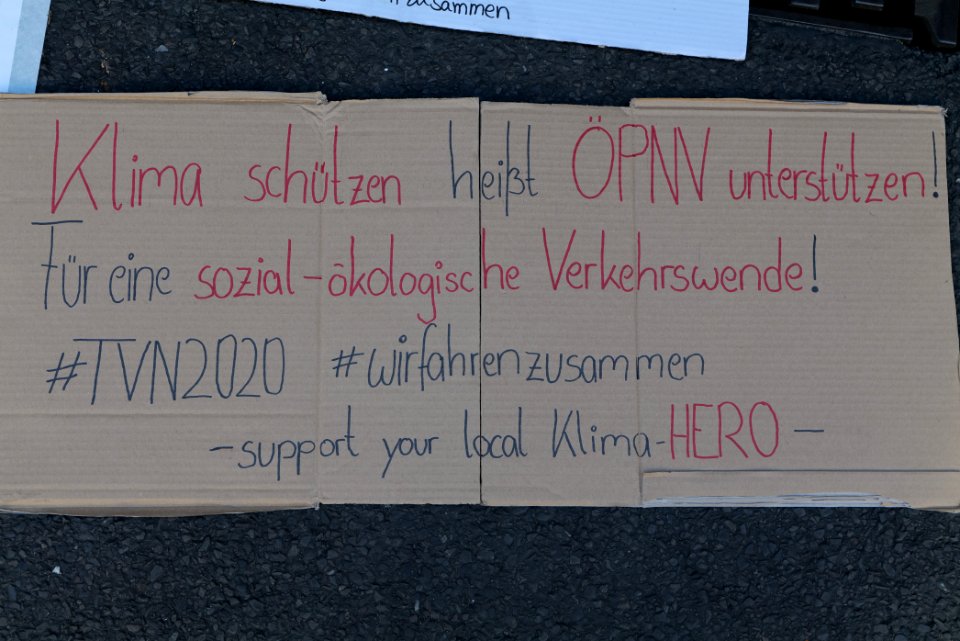 zusammen
Klima schützen heißt ÖPNV unterstützen!
Für eine sozial-ökologische Verkehrswende!
#TVN2020 #wirfahrenzusammen
- support your local Klima-HERO -